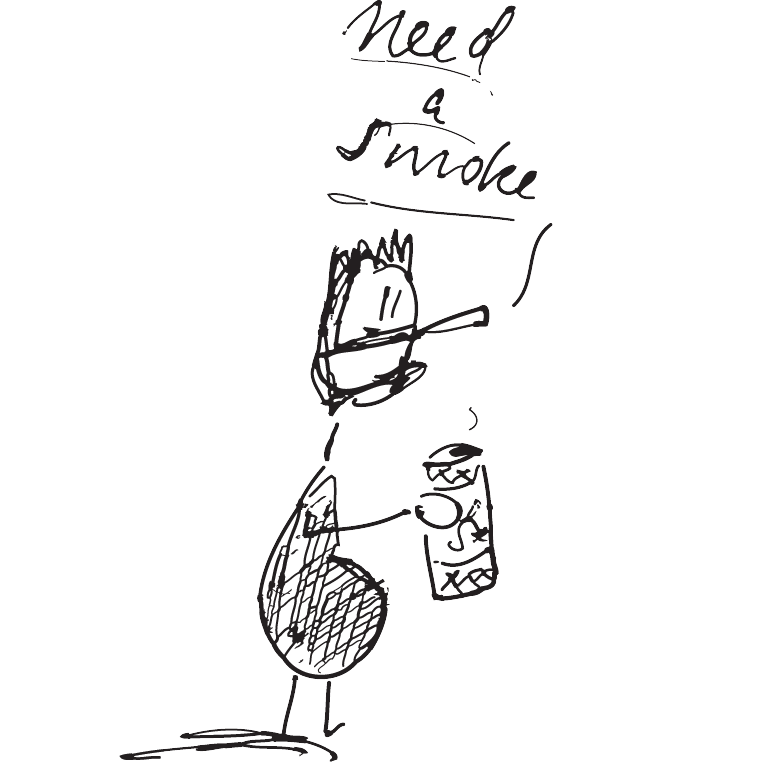 Need
a
smoke